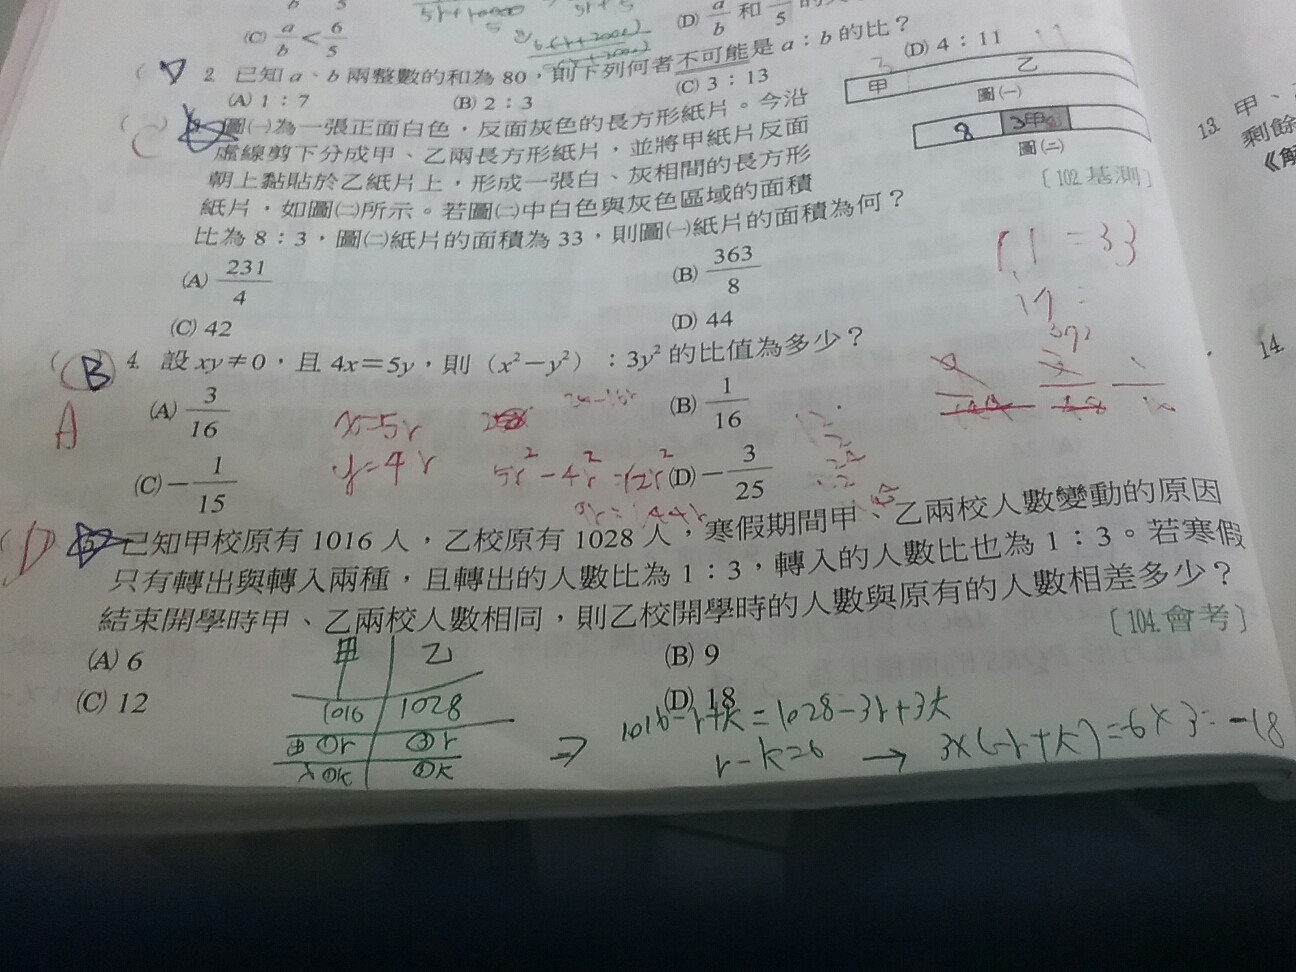 (C) a/b < 6/5
(D) a/b 和
2. 已知 a、b 兩整數的和為 80，則下列何者不可能是 a：b 的比？
(A) 1：7
(B) 2：3
(C) 3：13
(D) 4：11
圖㈠為一張正面白色，反面灰色的長方形紙片。今沿
虛線剪下分成甲、乙兩長方形紙片，並將甲紙片反面
朝上黏貼於乙紙片上，形成一張白、灰相間的長方形
紙片，如圖㈡所示。若圖㈡中白色與灰色區域的面積
比為 8：3，圖㈡紙片的面積為 33，則圖㈠紙片的面積為何？
甲
乙
圖㈠
8
3甲
圖㈡
〔102.基測〕
(A) 231/4
(B) 363/8
(C) 42
(D) 44
11 = 33
B
4. 設 xy≠0，且 4x＝5y，則（x²－y²）：3y² 的比值為多少？
A
(A) 3/16
(B) 1/16
(C) －1/15
(D) －3/25
x=5r
y=4r
D
已知甲校原有 1016 人，乙校原有 1028 人，寒假期間甲、乙兩校人數變動的原因
只有轉出與轉入兩種，且轉出的人數比為 1：3，轉入的人數比也為 1：3。若寒假
結束開學時甲、乙兩校人數相同，則乙校開學時的人數與原有的人數相差多少？
〔104.會考〕
(A) 6
(B) 9
(C) 12
(D) 18
甲 乙
1016 1028
⇒ 1016-r+k=1028-3r+3k
r-k=6 → 3×(-r+k)=-6×3=-18
13. 甲、
剩餘
《解
14.